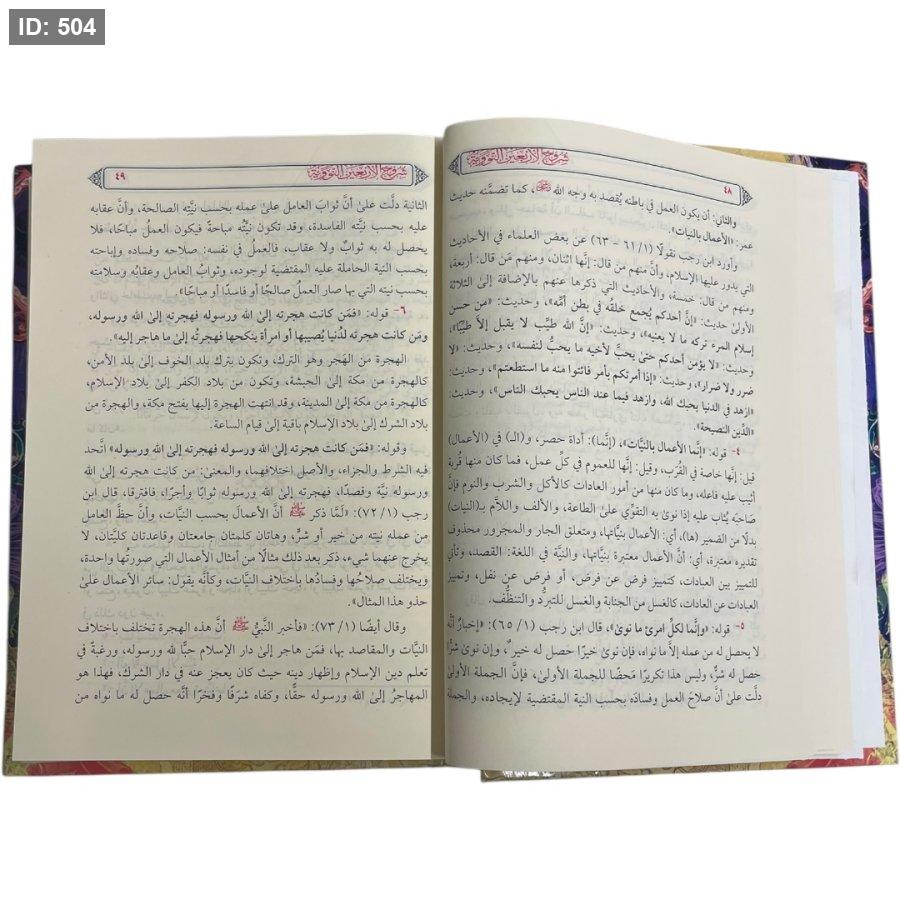 ID: 504
شروح الأربعين النووية
٤٨
والثاني: أن يكون العمل في باطنه يُقصد به وجه الله ﷻ، كما تضمَّنه حديث
عمر: «الأعمال بالنيات».
وأورد ابن رجب نقولًا (١/ ٦١ - ٦٣) عن بعض العلماء في الأحاديث
التي يدور عليها الإسلام، وأنَّ منهم من قال: إنَّها اثنان، ومنهم مَن قال: أربعة،
ومنهم من قال: خمسة، والأحاديث التي ذكرها عنهم بالإضافة إلى الثلاثة
الأولى حديث: «إنَّ أحدكم يُجمع خلقُه في بطن أمِّه»، وحديث: «من حسن
إسلام المرء تركه ما لا يعنيه»، وحديث: «إنَّ الله طيِّب لا يقبل إلاَّ طيِّبًا»،
وحديث: «لا يؤمن أحدكم حتى يحبَّ لأخيه ما يحبُّ لنفسه»، وحديث: «لا
ضرر ولا ضرار»، وحديث: «إذا أمرتكم بأمر فائتوا منه ما استطعتم»، وحديث:
«ازهد في الدنيا يحبك الله، وازهد فيما عند الناس يحبك الناس»، وحديث:
«الدِّين النصيحة».
٤- قوله: «إنَّما الأعمال بالنيَّات»، (إنَّما): أداة حصر، و(الـ) في (الأعمال)
قيل: إنَّها خاصة في القُرَب، وقيل: إنَّها للعموم في كلِّ عمل، فما كان منها قُربة
أثيب عليه فاعله، وما كان منها من أمور العادات كالأكل والشرب والنوم فإنَّ
صاحبَه يُثاب عليه إذا نوى به التقوِّي على الطاعة، والألف واللاَّم بـ(النيات)
بدلًا من الضمير (ها)، أي: الأعمال بنيَّاتها، ومتعلق الجار والمجرور محذوف
تقديره معتبرة، أي: أنَّ الأعمال معتبرة بنيَّاتها، والنيَّة في اللغة: القصد، وتأتي
للتمييز بين العبادات، كتمييز فرض عن فرض، أو فرض عن نفل، وتمييز
العبادات عن العادات، كالغسل من الجنابة والغسل للتبرُّد والتنظُّف.
٥- قوله: «وإنَّما لكلِّ امرئ ما نوى»، قال ابن رجب (١/ ٦٥): «إخبارٌ أنَّه
لا يحصل له من عمله إلاَّ ما نواه، فإن نوى خيرًا حصل له خير، وإن نوى شرًّا
حصل له شرٌّ، وليس هذا تكريرًا مَحضًا للجملة الأولى، فإنَّ الجملة الأولى
دلَّت على أنَّ صلاحَ العمل وفسادَه بحسب النية المقتضية لإيجاده، والجملة
شروح الأربعين النووية
٤٩
الثانية دلَّت على أنَّ ثوابَ العامل على عمله بحسب نيَّتِه الصالحة، وأنَّ عقابه
عليه بحسب نيَّته الفاسدة، وقد تكون نيَّتُه مباحة فيكون العملُ مباحًا، فلا
يحصل له به ثوابٌ ولا عقاب، فالعملُ في نفسه: صلاحه وفساده وإباحته
بحسب النية الحاملة عليه المقتضية لوجوده، وثوابُ العامل وعقابُه وسلامته
بحسب نيته التي بها صار العملُ صالحًا أو فاسدًا أو مباحًا».
٦- قوله: «فمَن كانت هجرته إلى الله ورسوله فهجرته إلى الله ورسوله،
ومَن كانت هجرته لدُنيا يُصيبها أو امرأة ينكحها فهجرتُه إلى ما هاجر إليه».
الهجرة من الهَجر وهو الترك، وتكون بترك بلد الخوف إلى بلد الأمن،
كالهجرة من مكة إلى الحبشة، وتكون من بلاد الكفر إلى بلاد الإسلام،
كالهجرة من مكة إلى المدينة، وقد انتهت الهجرة إليها بفتح مكة، والهجرة من
بلاد الشرك إلى بلاد الإسلام باقية إلى قيام الساعة.
وقوله: «فمَن كانت هجرته إلى الله ورسوله فهجرته إلى الله ورسوله» اتَّحد
فيه الشرط والجزاء، والأصل اختلافهما، والمعنى: من كانت هجرته إلى الله
ورسوله نيَّة وقصدًا، فهجرته إلى الله ورسوله ثوابًا وأجرًا، فافترقا، قال ابن
رجب (١/ ٧٢): «لَمَّا ذكر ﷺ أنَّ الأعمالَ بحسب النيَّات، وأنَّ حظَّ العامل
من عمله نيته من خير أو شرٍّ، وهاتان كلمتان جامعتان وقاعدتان كليَّتان، لا
يخرج عنهما شيء، ذكر بعد ذلك مثالًا من أمثال الأعمال التي صورتُها واحدة،
ويختلف صلاحُها وفسادُها باختلاف النيَّات، وكأنَّه يقول: سائر الأعمال على
حذو هذا المثال».
وقال أيضًا (١/ ٧٣): «فأخبر النَّبيُّ ﷺ أنَّ هذه الهجرة تختلف باختلاف
النيَّات والمقاصد بها، فمَن هاجر إلى دار الإسلام حبًّا لله ورسوله، ورغبةً في
تعلم دين الإسلام وإظهار دينه حيث كان يعجز عنه في دار الشرك، فهذا هو
المهاجرُ إلى الله ورسوله حقًّا، وكفاه شرَفًا وفخرًا أنَّه حصل له ما نواه من